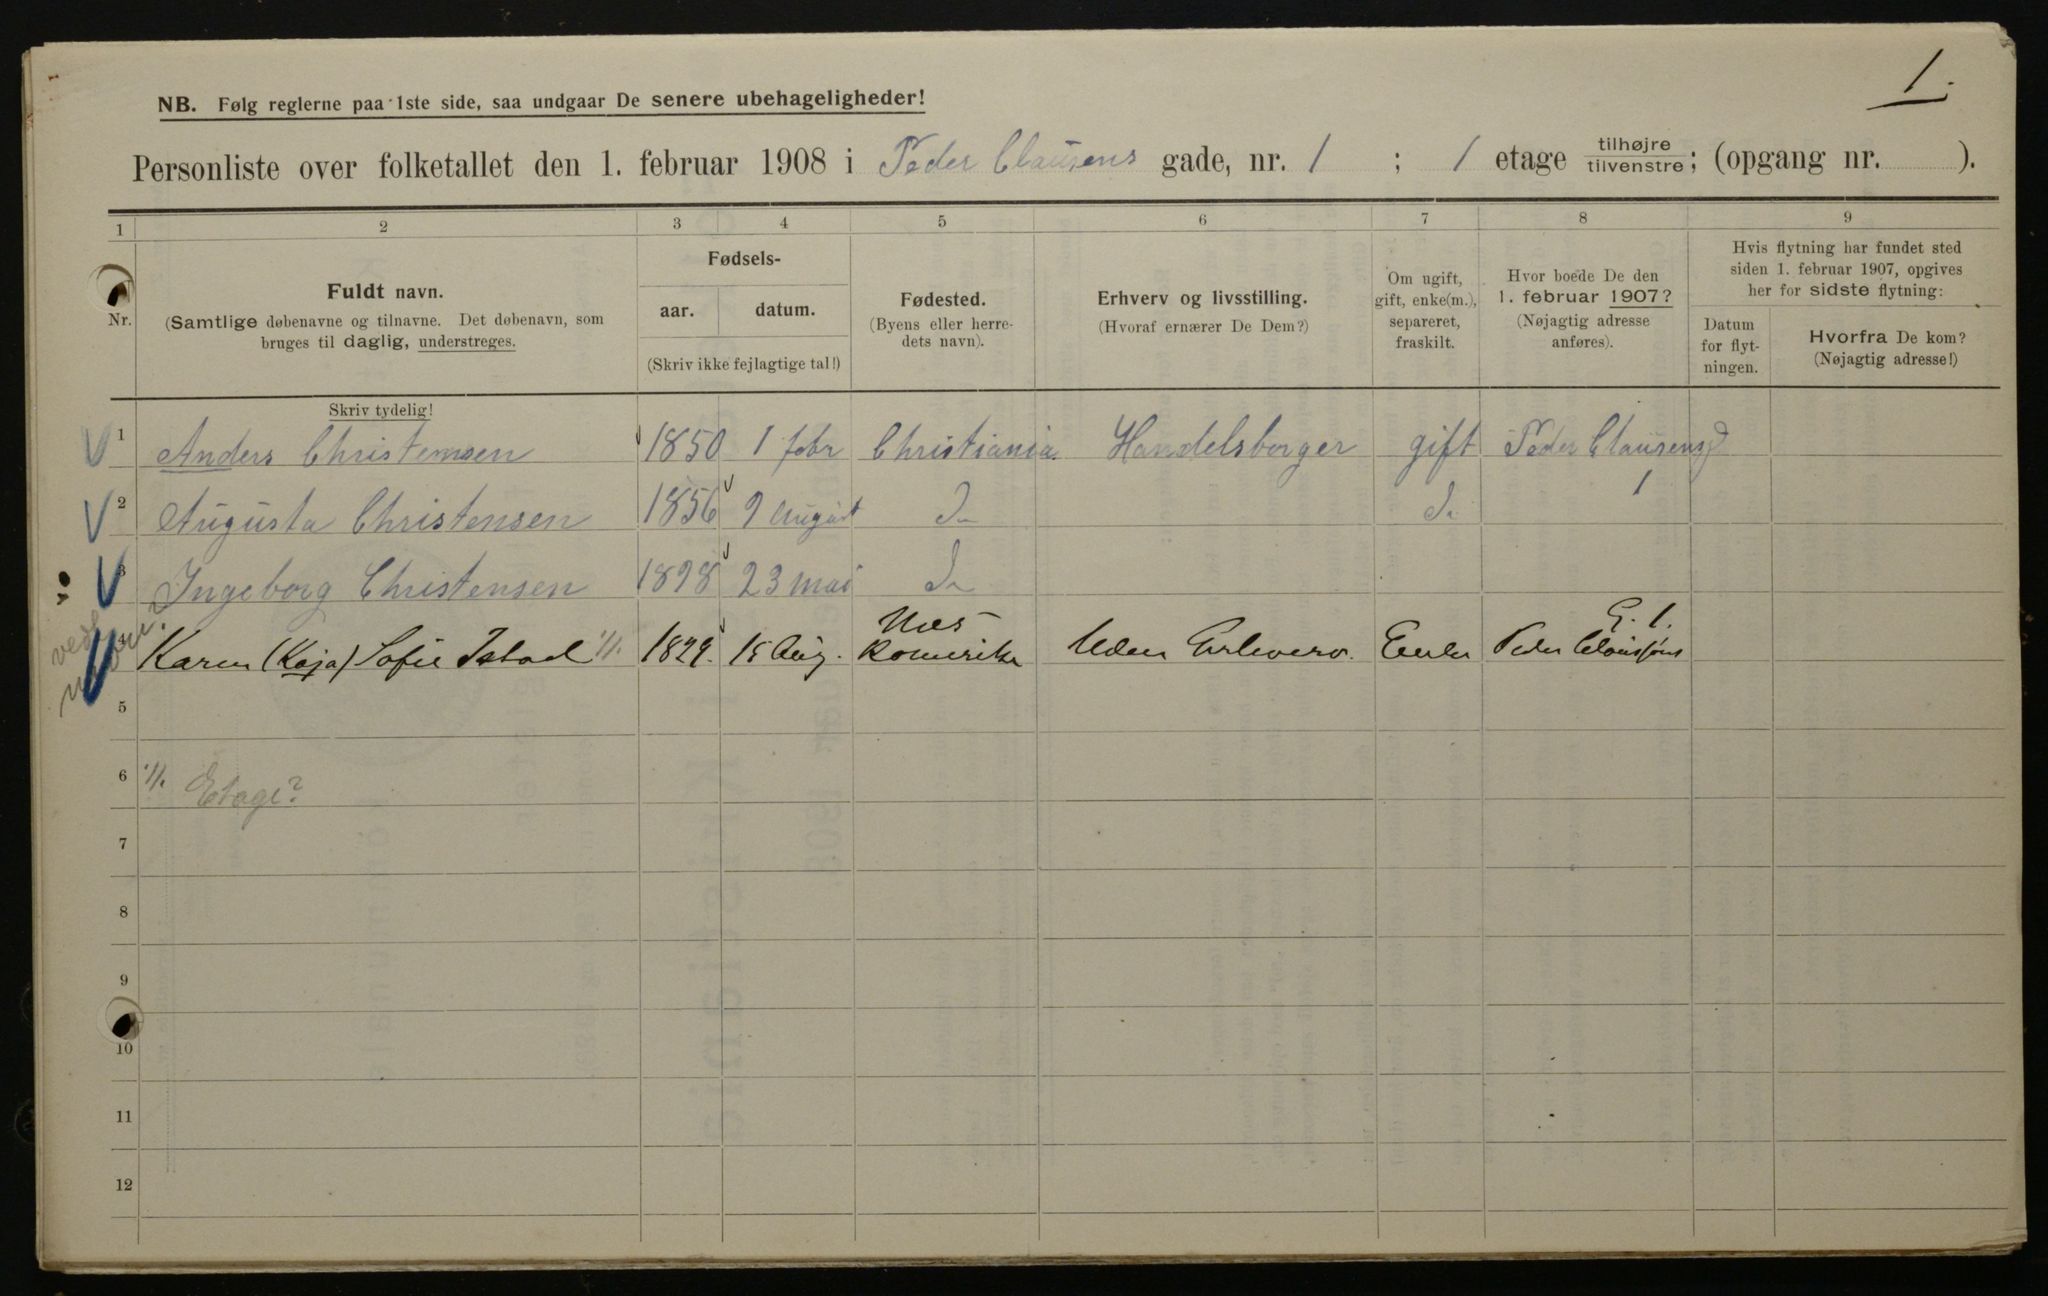 1.
NB. Følg reglerne paa 1ste side, saa undgaar De senere ubehageligheder!
Personliste over folketallet den 1. februar 1908 i Peder Clausens gade, nr. 1 ; 1 etage tilhøjre/tilvenstre; (opgang nr. ).
1 2 3 4 5 6 7 8 9
Nr.
Fuldt navn.
(Samtlige døbenavne og tilnavne. Det døbenavn, som
bruges til daglig, understreges.
Skriv tydelig!
Fødsels-
aar. datum.
(Skriv ikke fejlagtige tal!)
Fødested.
(Byens eller herre-
dets navn).
Erhverv og livsstilling.
(Hvoraf ernærer De Dem?)
Om ugift,
gift, enke(m.),
separeret,
fraskilt.
Hvor boede De den
1. februar 1907?
(Nøjagtig adresse
anføres).
Hvis flytning har fundet sted
siden 1. februar 1907, opgives
her for sidste flytning:
Datum
for flyt-
ningen.
Hvorfra De kom?
(Nøjagtig adresse!)
1 Anders Christensen 1850 1 febr Christiania Handelsborger gift Peder Clausens g
1
2 Augusta Christensen 1856 9 August do do
3 Ingeborg Christensen 1898 23 mai do
4 Karen (Kaja) Sofie Istad 1/1. 1829. 15 Aug. Næs Romerike Uden Erhverv. Enke Peder Claussøns G. 1.
5
6 1/1. Etage?
7
8
9
10
11
12